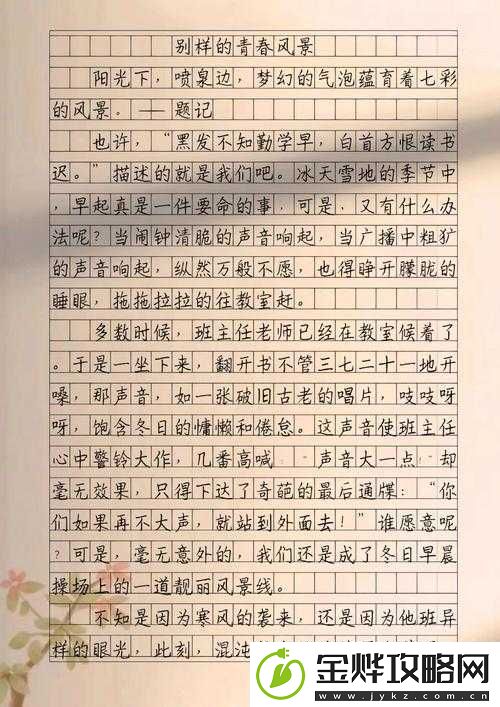 别样的青春风景
阳光下，喷泉边，梦幻的气泡蕴育着七彩
的风景。——题记
也许，“黑发不知勤学早，白首方恨读书
迟。”描述的就是我们吧。冰天雪地的季节中
，早起真是一件要命的事，可是，又有什么办
法呢？当闹钟清脆的声音响起，当广播中粗犷
的声音响起，纵然万般不愿，也得睁开朦胧的
睡眼，拖拖拉拉的往教室赶。
多数时候，班主任老师已经在教室候着了
。于是一坐下来，翻开书不管三七二十一地开
嗓，那声音，如一张破旧古老的唱片，吱吱呀
呀，饱含冬日的慵懒和倦怠。这声音使班主任
心中警铃大作，几番高喊 声音大一点 却
毫无效果，只得下达了奇葩的最后通牒：“你
们如果再不大声，就站到外面去！”谁愿意呢
？可是，毫无意外的，我们还是成了冬日早晨
操场上的一道靓丽风景线。
不知是因为寒风的袭来，还是因为他班异
样的眼光，此刻，混沌
金烨攻略网
www.jykz.com.cn